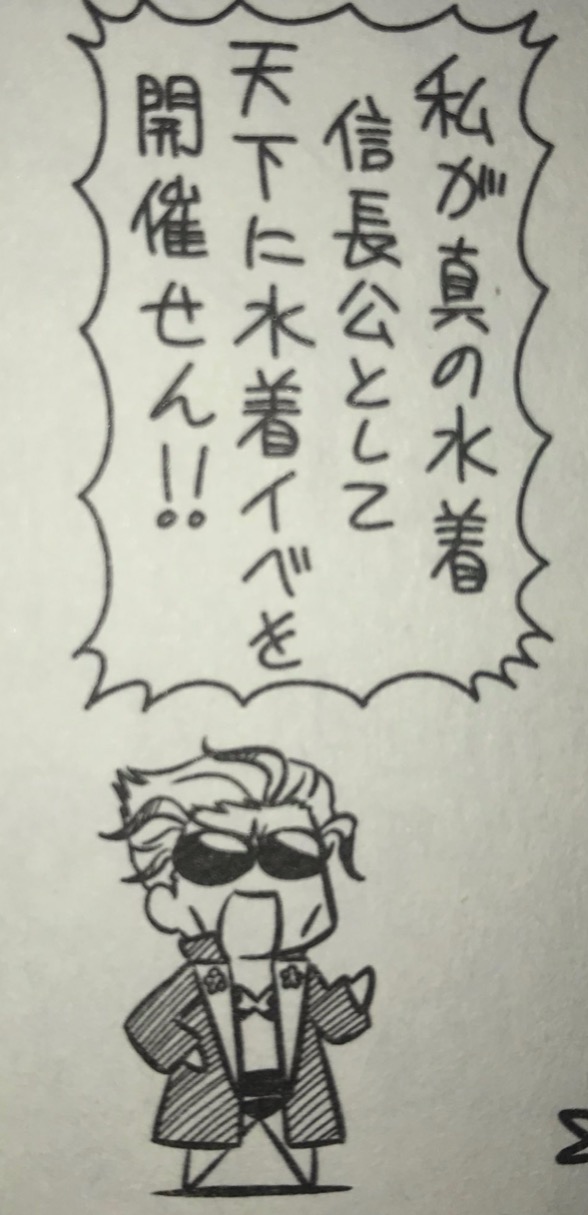 私が真の水着
信長公として
天下に水着イベを
開催せん!!